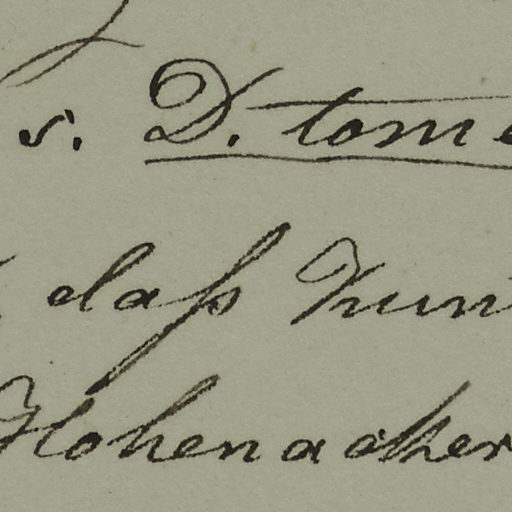 s. D. tome
daß Kun
Hohenacker